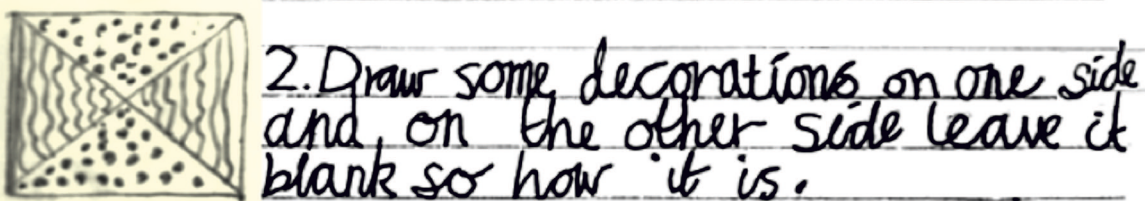 2. Draw some decorations on one side
and on the other side leave it
blank so how it is.